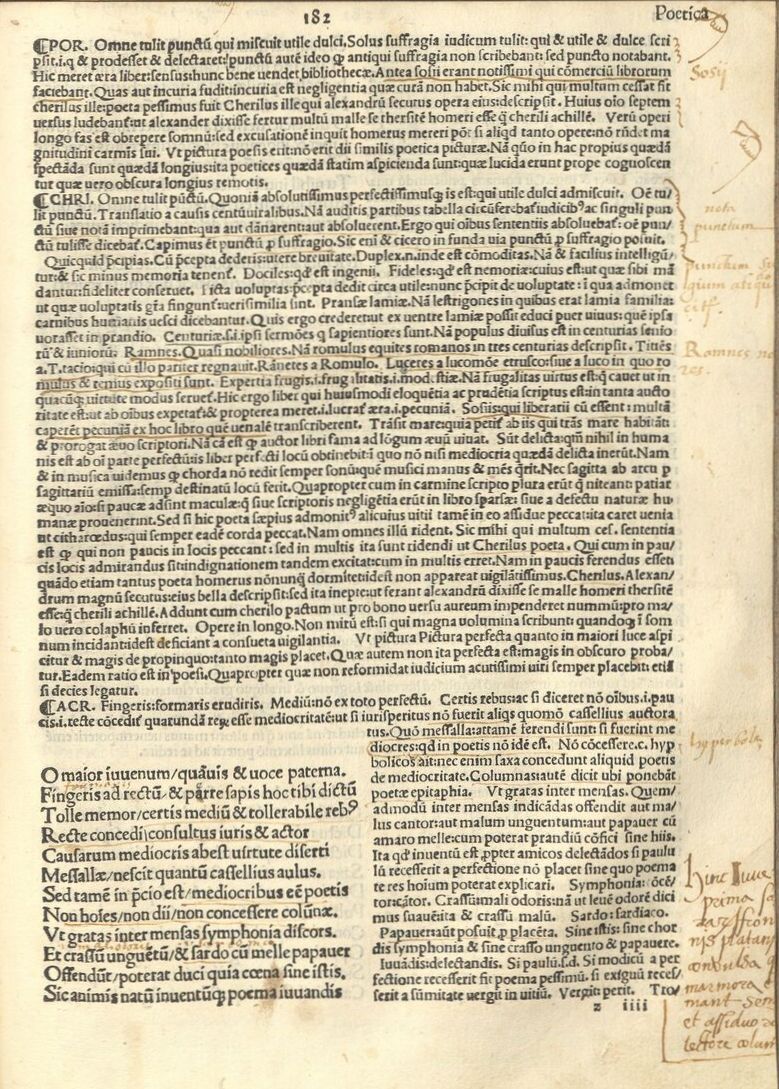 182
Poetica
¶POR. Omne tulit punctū qui miscuit utile dulci. Solus suffragia iudicum tulit: qui & utile & dulce scri
psit. i. q & prodesset & delectaret: punctū autē ideo ꝙ antiqui suffragia non scribebant: sed puncto notabant.
Hic meret æra liber: sensus: hunc bene uendet bibliothecæ. Antea sosii erant notissimi qui cōmerciū librorum
faciebant. Quas aut incuria fudit: incuria est negligentia quæ curā non habet. Sic mihi qui multum cessat fit
cherilus ille: poeta pessimus fuit Cherilus ille qui alexandrū secutus opera eius: descripsit. Huius oīo septem
uersus ludebant: ut alexander dixisse fertur multū malle se thersitē homeri esse ꝗ̄ cherili achillē. Verū operi
longo fas est obrepere somnū: sed excusationē inquit homerus mereri pōt si aliqd tanto opere: nō rn̄det ma
gnitudini carmīs sui. Vt pictura poesis erit: nō erit dii similis poetica picturæ. Nā quo in hac propius quædā
spectāda sunt quædā longius: ita poetices quædā statim aspicienda sunt: quæ lucida erunt prope cognoscen
tur quæ uero obscura longius remotis.
¶CHRI. Omne tulit pūctū. Quoniā absolutissimus perfectissimusq; is est: qui utile dulci admiscuit. Oē tu/
lit punctū. Translatio a causis centūuiralibus. Nā auditis partibus tabella circūferebat iudicib⁹ ac singuli pun
ctū siue notā imprimebant: qua aut dānarent: aut absoluerent. Ergo qui oībus sententiis absoluebat: oē pun/
ctū tulisse dicebat. Capimus et punctū ꝓ suffragio. Sic eni & cicero in funda uia punctū ꝓ suffragio posuit.
Quicquid p̄cipias. Cū p̄cepta dederis: utere breuitate. Duplex. n. inde est cōmoditas. Nā & facilius intelligū/
tur: & sic minus memoria tenent. Dociles: qd est ingenii. Fideles: qd est memoriæ: cuius est: ut quæ sibi mā
dantur: fideliter conseruet. Ficta uoluptas: p̄cepta dedit circa utile: nunc p̄cipit de uoluptate: ī qua admonet
ut quæ uoluptatis gr̄a finguntur: uerisimilia sint. Pransæ lamiæ. Nā lestrigones in quibus erat lamia familia:
carnibus humanis uesci dicebantur. Quis ergo crederet: ut ex uentre lamiæ possit educi puer uiuus: quē ipsa
uorasset in prandio. Centuriæ. s. i. ipsi sermōes q sapientiores sunt. Nā populus diuisus est in centurias senio
rū & iuniorū. Ramnes. Quasi nobiliores. Nā romulus equites romanos in tres centurias descripsit. Titiēs
a. T. tacio: qui cū illo pariter regnauit. Rānetes a Romulo. Luceres a lucomōe etrusco: siue a luco in quo ro
mulus & remus expositi sunt. Expertia frugis. i. frugalitatis. i. modestiæ. Nā frugalitas uirtus est: ꝗ cauet ut in
quacūq; uirtute modus seruet. Hic ergo liber qui huiusmodi eloquētia ac prudētia scriptus est: in tanta aucto
ritate est: ut ab oībus expetat: & propterea meret. i. lucrat æra. i. pecuniā. Sosiis: qui librarii cū essent: multā
caperēt pecuniā ex hoc libro quē uenalē transcriberent. Trāsit mare: quia petit ab iis qui trās mare habitāt:
& prorogat æuo scriptori. Nā cā est ꝙ auctor libri fama ad lōgum æuū uiuat. Sūt delicta: qm̄ nihil in huma
nis est ab oī parte perfectū: is liber perfecti locū obtinebit: ī quo nō nisi mediocria quædā delicta inerūt. Nam
& in musica uidemus ꝙ chorda nō redit semper sonū: quē musici manus & mēs q̄rit. Nec sagitta ab arcu p
sagittariū emissa: semp destinatū locū ferit. Quapropter cum in carmine scripto plura erūt q niteant: patiar
æquo aīo: si paucæ adsint maculæ: q siue scriptoris negligētia erūt in libro sparsæ: siue a defectu naturæ hu
manæ prouenerint. Sed si hic poeta sæpius admonit⁹ alicuius uitii tamē in eo assidue peccat: ita caret uenia
ut citharœdus: qui semper eadē corda peccat. Nam omnes illū rident. Sic mihi qui multum ces. sententia
est ꝙ qui non paucis in locis peccant: sed in multis ita sunt ridendi ut Cherilus poeta. Qui cum in pau/
cis locis admirandus sit: indignationem tandem excitat: cum in multis erret. Nam in paucis ferendus esset:
quādo etiam tantus poeta homerus nōnunq̄ dormitet: idest non appareat uigilātissimus. Cherilus. Alexan/
drum magnū secutus: eius bella descripsit: sed ita inepte: ut ferant alexandrū dixisse se malle homeri thersitē
esse: ꝗ̄ cherili achillē. Addunt cum cherilo pactum ut pro bono uersu aureum impenderet nummū: pro ma/
lo uero colaphū inferret. Opere in longo. Non mirū est: si qui magna uolumina scribunt: quandoq; ī som
num incidant: idest deficiant a consueta uigilantia. Vt pictura Pictura perfecta quanto in maiori luce aspi
citur & magis de propinquo: tanto magis placet. Quæ autem non ita perfecta est: magis in obscuro proba/
tur. Eadem ratio est in poesi. Quapropter quæ non reformidat iudicium acutissimi uiri semper placebit: etiā
si decies legatur.
¶ACR. Fingeris: formaris erudiris. Mediū: nō ex toto perfectū. Certis rebus: ac si diceret nō oībus. i. pau
cis. i. recte cōcedit quarundā rerū esse mediocritatē: ut si iurisperitus nō fuerit aliqs quomō cassellius auctora
tus. Quō messalla: attamē ferendi sunt: si fuerint me
diocres: qd in poetis nō idē est. Nō cōcessere. c. hyp
bolicos ait: nec enim saxa concedunt aliquid poetis
de mediocritate. Columnas: autē dicit ubi ponebāt
poetæ epitaphia. Vt gratas inter mensas. Quem/
admodū inter mensas indicādas offendit aut ma/
lus cantor: aut malum unguentum: aut papauer cū
amaro melle: cum poterat prandiū cōfici sine hiis.
Ita qd inuentū est ꝓpter amicos delectādos si paulu
lū recesserit a perfectione nō placet sine quo poema
te res hoīum poterat explicari. Symphonia: ōcē/
tor: cātor. Crassū: mali odoris: nā ut leuē odorē dici
mus suauē: ita & crassū malū. Sardo: sardiaco.
Papauer: aūt posuit ꝓ placēta. Sine istis: sine chor
dis symphonia & sine crasso unguento & papauere.
Iuuādis: delectandis. Si paulū. s. d. Si modicū a per
fectione recesserit fit poema pessimū. si exiguū reces/
serit a sūmitate uergit in uitiū. Vergit: perit. Tro/
z iiii
O maior iuuenum/quāuis & uoce paterna.
Fingeris ad rectū/& parre sapis hoc tibi dictū
Tolle memor/certis mediū & tollerabile reb⁹
Recte concedi\consultus iuris & actor
Causarum mediocris abest uirtute diserti
Messallæ/nescit quantū cassellius aulus.
Sed tamē in p̄cio est/mediocribus eē poetis
Non hoīes/non dii/non concessere colūnæ.
Vt gratas inter mensas symphonia discors.
Et crassū unguētū/& sardo cū melle papauer
Offendūt/poterat duci quia cœna sine istis.
Sic animis natū inuentūq; poema iuuandis
Sosij
nota
punctum
punctum
Ramnes
hyperbole
hinc Iuue
prima
platani
convulsa
marmora
et assiduo
lectore colum